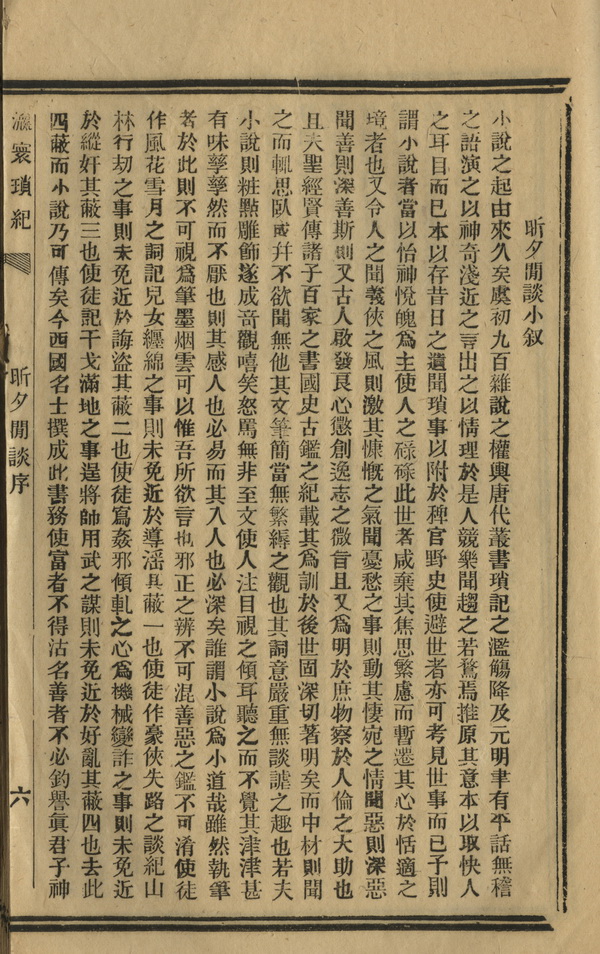 昕夕閒談小叙
小說之起由來久矣虞初九百雜說之權輿唐代叢書瑣記之濫觴降及元明聿有平話無稽
之語演之以神奇淺近之言出之以情理於是人競樂聞趨之若鶩焉推原其意本以取快人
之耳目而已本以存昔日之遺聞瑣事以附於稗官野史使避世者亦可考見世事而已予則
謂小說者當以怡神悅魄爲主使人之碌碌此世者咸棄其焦思繁慮而暫遷其心於恬適之
境者也又令人之聞義俠之風則激其慷慨之氣聞憂愁之事則動其悽宛之情聞惡則深惡
聞善則深善斯則又古人啟發良心懲創逸志之微旨且又爲明於庶物察於人倫之大助也
且夫聖經賢傳諸子百家之書國史古鑑之紀載其爲訓於後世固深切著明矣而中材則聞
之而輒思臥或幷不欲聞無他其文筆簡當無繁縟之觀也其詞意嚴重無談謔之趣也若夫
小說則粧點雕飾遂成奇觀嘻笑怒罵無非至文使人注目視之傾耳聽之而不覺其津津甚
有味孳孳然而不厭也則其感人也必易而其入人也必深矣誰謂小說爲小道哉雖然執筆
者於此則不可視爲筆墨烟雲可以惟吾所欲言也邪正之辨不可混善惡之鑑不可淆使徒
作風花雪月之詞記兒女纏綿之事則未免近於導淫其蔽一也使徒作豪俠失路之談紀山
林行刧之事則未免近於誨盜其蔽二也使徒寫姦邪傾軋之心爲機械變詐之事則未免近
於縱奸其蔽三也使徒記干戈滿地之事逞將帥用武之謀則未免近於好亂其蔽四也去此
四蔽而小說乃可傳矣今西國名士撰成此書務使富者不得沽名善者不必釣譽眞君子神
寰瑣紀
昕夕閒談序
六